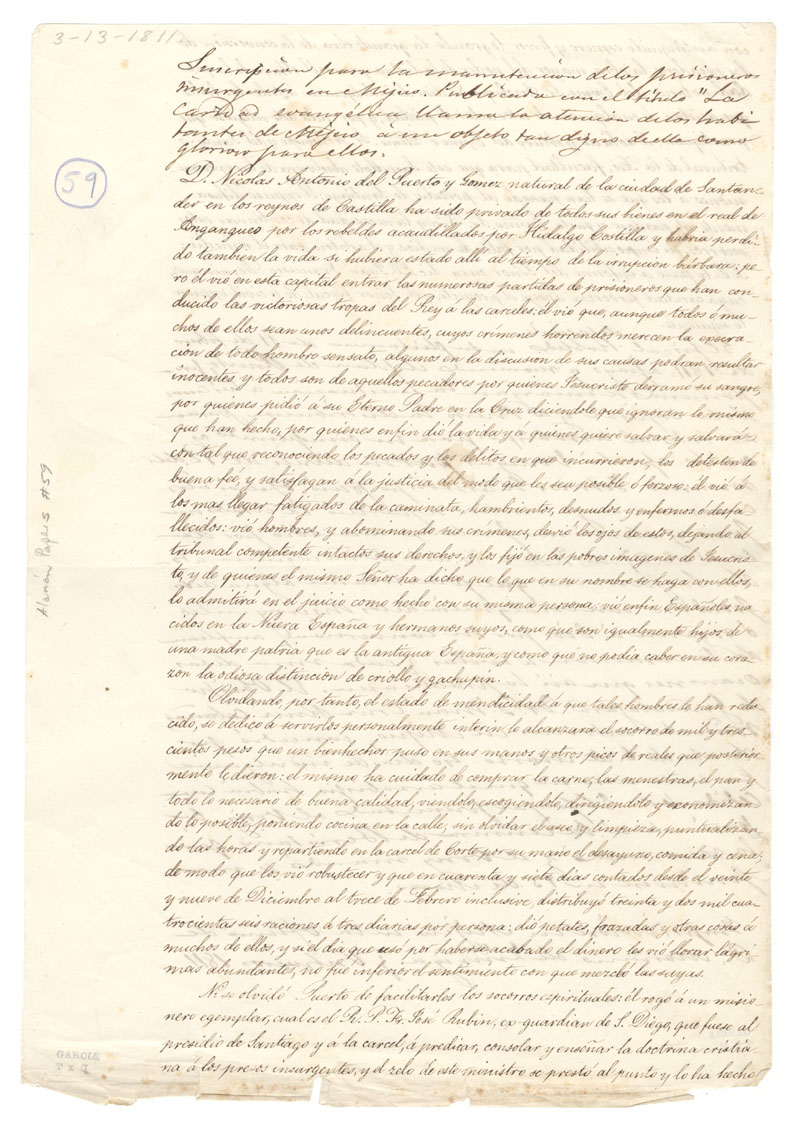 3-13-1811
Suscripcion para la manutencion de los prisioneros
insurgentes en Mejico. Publicada con el titulo "La
caridad evangélica llama la atencion de los habi
tantes de Mejico á un objeto tan digno de ella como
glorioso para ellos.
59
D. Nicolas Antonio del Puerto y Gomez natural de la ciudad de Santan-
der en los reynos de Castilla ha sido privado de todos sus bienes en el real de
Angangueo por los rebeldes acaudillados por Hidalgo Costilla y habria perdi-
do tambien la vida si hubiera estado allí al tiempo de la irrupcion bárbara: pe-
ro él vió en esta capital entrar las numerosas partidas de prisioneros que han con-
ducido las victoriosas tropas del Rey á las carceles: él vió que, aunque todos ó mu-
chos de ellos sean unos delincuentes, cuyos crímenes horrendos merecen la execra-
cion de todo hombre sensato, algunos en la discusion de sus causas podran resultar
inocentes y todos son de aquellos pecadores por quienes Jesucristo derramo su sangre,
por quienes pidió á su Eterno Padre en la Cruz diciendole que ignoran lo mismo
que han hecho, por quienes enfin dió la vida y á quienes quiere salvar y salvará
con tal que reconociendo los pecados y los délitos en que incurrieron, los detesten de
buena feé, y satisfagan a la justicia del modo que les sea posible ó forzoso: él vió á
los mas llegar fatigados de la caminata, hambrientos, desnudos y enfermos ó desfa-
llecidos: vió hombres, y abominando sus crímenes, desvió los ojos de estos, dejando al
tribunal competente intactos sus derechos, y los fijó en las pobres imagenes de Jesucris-
to, y de quienes el mismo Señor ha dicho que lo que en su nombre se haga con ellos,
lo admitirá en el juicio como hecho con su misma persona: vió enfin Españoles na
cidos en la Nueva España y hermanos suyos, como que son igualmente hijos de
una madre patria que es la antigua España, y como que no podia caber en su cora-
zon la odiosa distincion de criollo y gachupin.
Olvidando, por tanto, el estado de mendicidad á que tales hombres le han redu-
cido, se dedicó á servirlos personalmente interin le alcanzara el socorro de mil y tres-
cientos pesos que un bienhechor puso en sus manos y otros picos de reales que posterior-
mente le dieron: el mismo ha cuidado de comprar la carne, las menestras, el pan y
todo lo necesario de buena calidad, viendolo, escogiendolo, dirigiendolo y economizan-
do lo posible, poniendo cocina en la calle, sin olvidar el aseo y limpieza, puntualizan-
do las horas y repartiendo en la carcel de Corte por su mano el desayuno, comida y cena;
de modo que los vió robustecer y que en cuarenta y siete dias contados desde el veinte
y nueve de Diciembre al trece de Febrero inclusive, distribuyó treinta y dos mil cua-
trocientas seis raciones á tres diarias por persona: dió petates, frazadas y otras cosas á
muchos de ellos, y si el dia que cesó por haberse acabado el dinero les vió llorar lágri-
mas abundantes, no fue inferior el sentimiento con que mezcló las suyas.
No se olvidó Puerto de facilitarles los socorros espirituales: él rogó á un misio-
nero egemplar, cual es el R. P. Fr. José Rubin, ex-guardian de S. Diego, que fuese al
presidio de Santiago y á la carcel, á predicar, consolar y enseñar la doctrina cristia-
na á los presos insurgentes, y el zelo de este ministro se prestó al punto y lo ha hecho
Alamán Papers #59
GARCIA